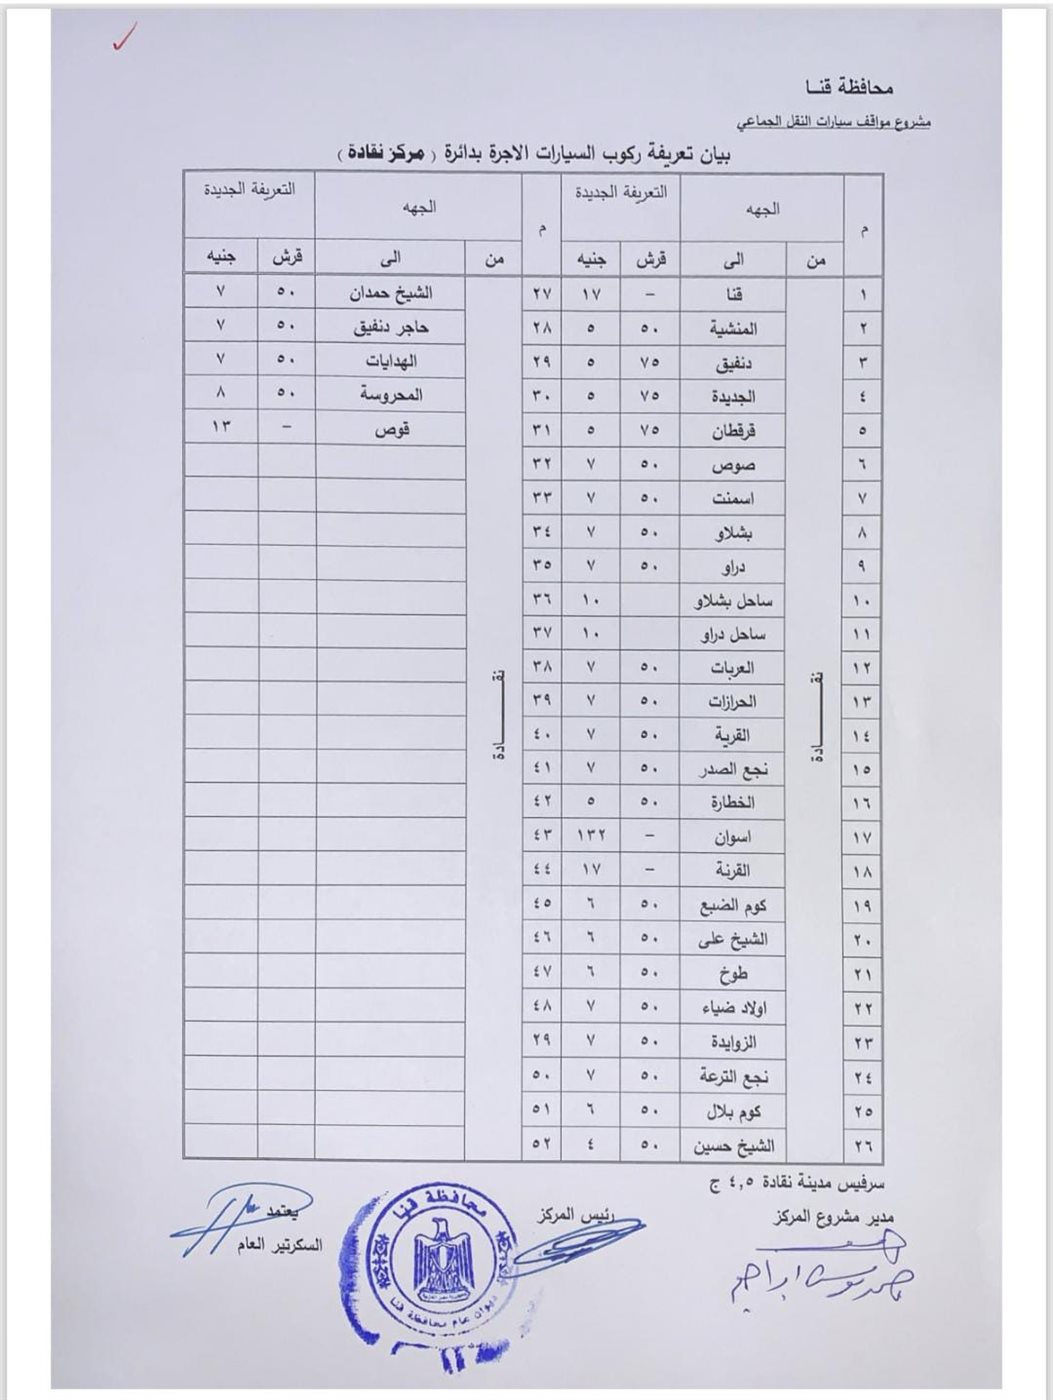 محافظة قنا
مشروع مواقف سيارات النقل الجماعي
بيان تعريفة ركوب السيارات الاجرة بدائرة ( مركز نقادة )
م الجهه التعريفة الجديدة م الجهه التعريفة الجديدة
من الى قرش جنيه من الى قرش جنيه
نقــــــادة نقــــــادة
١ قنا – ١٧ ٢٧ الشيخ حمدان ٥٠ ٧
٢ المنشية ٥٠ ٥ ٢٨ حاجر دنفيق ٥٠ ٧
٣ دنفيق ٧٥ ٥ ٢٩ الهدايات ٥٠ ٧
٤ الجديدة ٧٥ ٥ ٣٠ المحروسة ٥٠ ٨
٥ قرقطان ٧٥ ٥ ٣١ قوص – ١٣
٦ صوص ٥٠ ٧ ٣٢
٧ اسمنت ٥٠ ٧ ٣٣
٨ بشلاو ٥٠ ٧ ٣٤
٩ دراو ٥٠ ٧ ٣٥
١٠ ساحل بشلاو ١٠ ٣٦
١١ ساحل دراو ١٠ ٣٧
١٢ العربات ٥٠ ٧ ٣٨
١٣ الحرازات ٥٠ ٧ ٣٩
١٤ القرية ٥٠ ٧ ٤٠
١٥ نجع الصدر ٥٠ ٧ ٤١
١٦ الخطارة ٥٠ ٥ ٤٢
١٧ اسوان – ١٣٢ ٤٣
١٨ القرنة – ١٧ ٤٤
١٩ كوم الضبع ٥٠ ٦ ٤٥
٢٠ الشيخ على ٥٠ ٦ ٤٦
٢١ طوخ ٥٠ ٦ ٤٧
٢٢ اولاد ضياء ٥٠ ٧ ٤٨
٢٣ الزوايدة ٥٠ ٧ ٢٩
٢٤ نجع الترعة ٥٠ ٧ ٥٠
٢٥ كوم بلال ٥٠ ٦ ٥١
٢٦ الشيخ حسين ٥٠ ٤ ٥٢
سرفيس مدينة نقادة ٤,٥ ج
مدير مشروع المركز رئيس المركز يعتمد
السكرتير العام
محافظة قنا
ديوان عام محافظة قنا